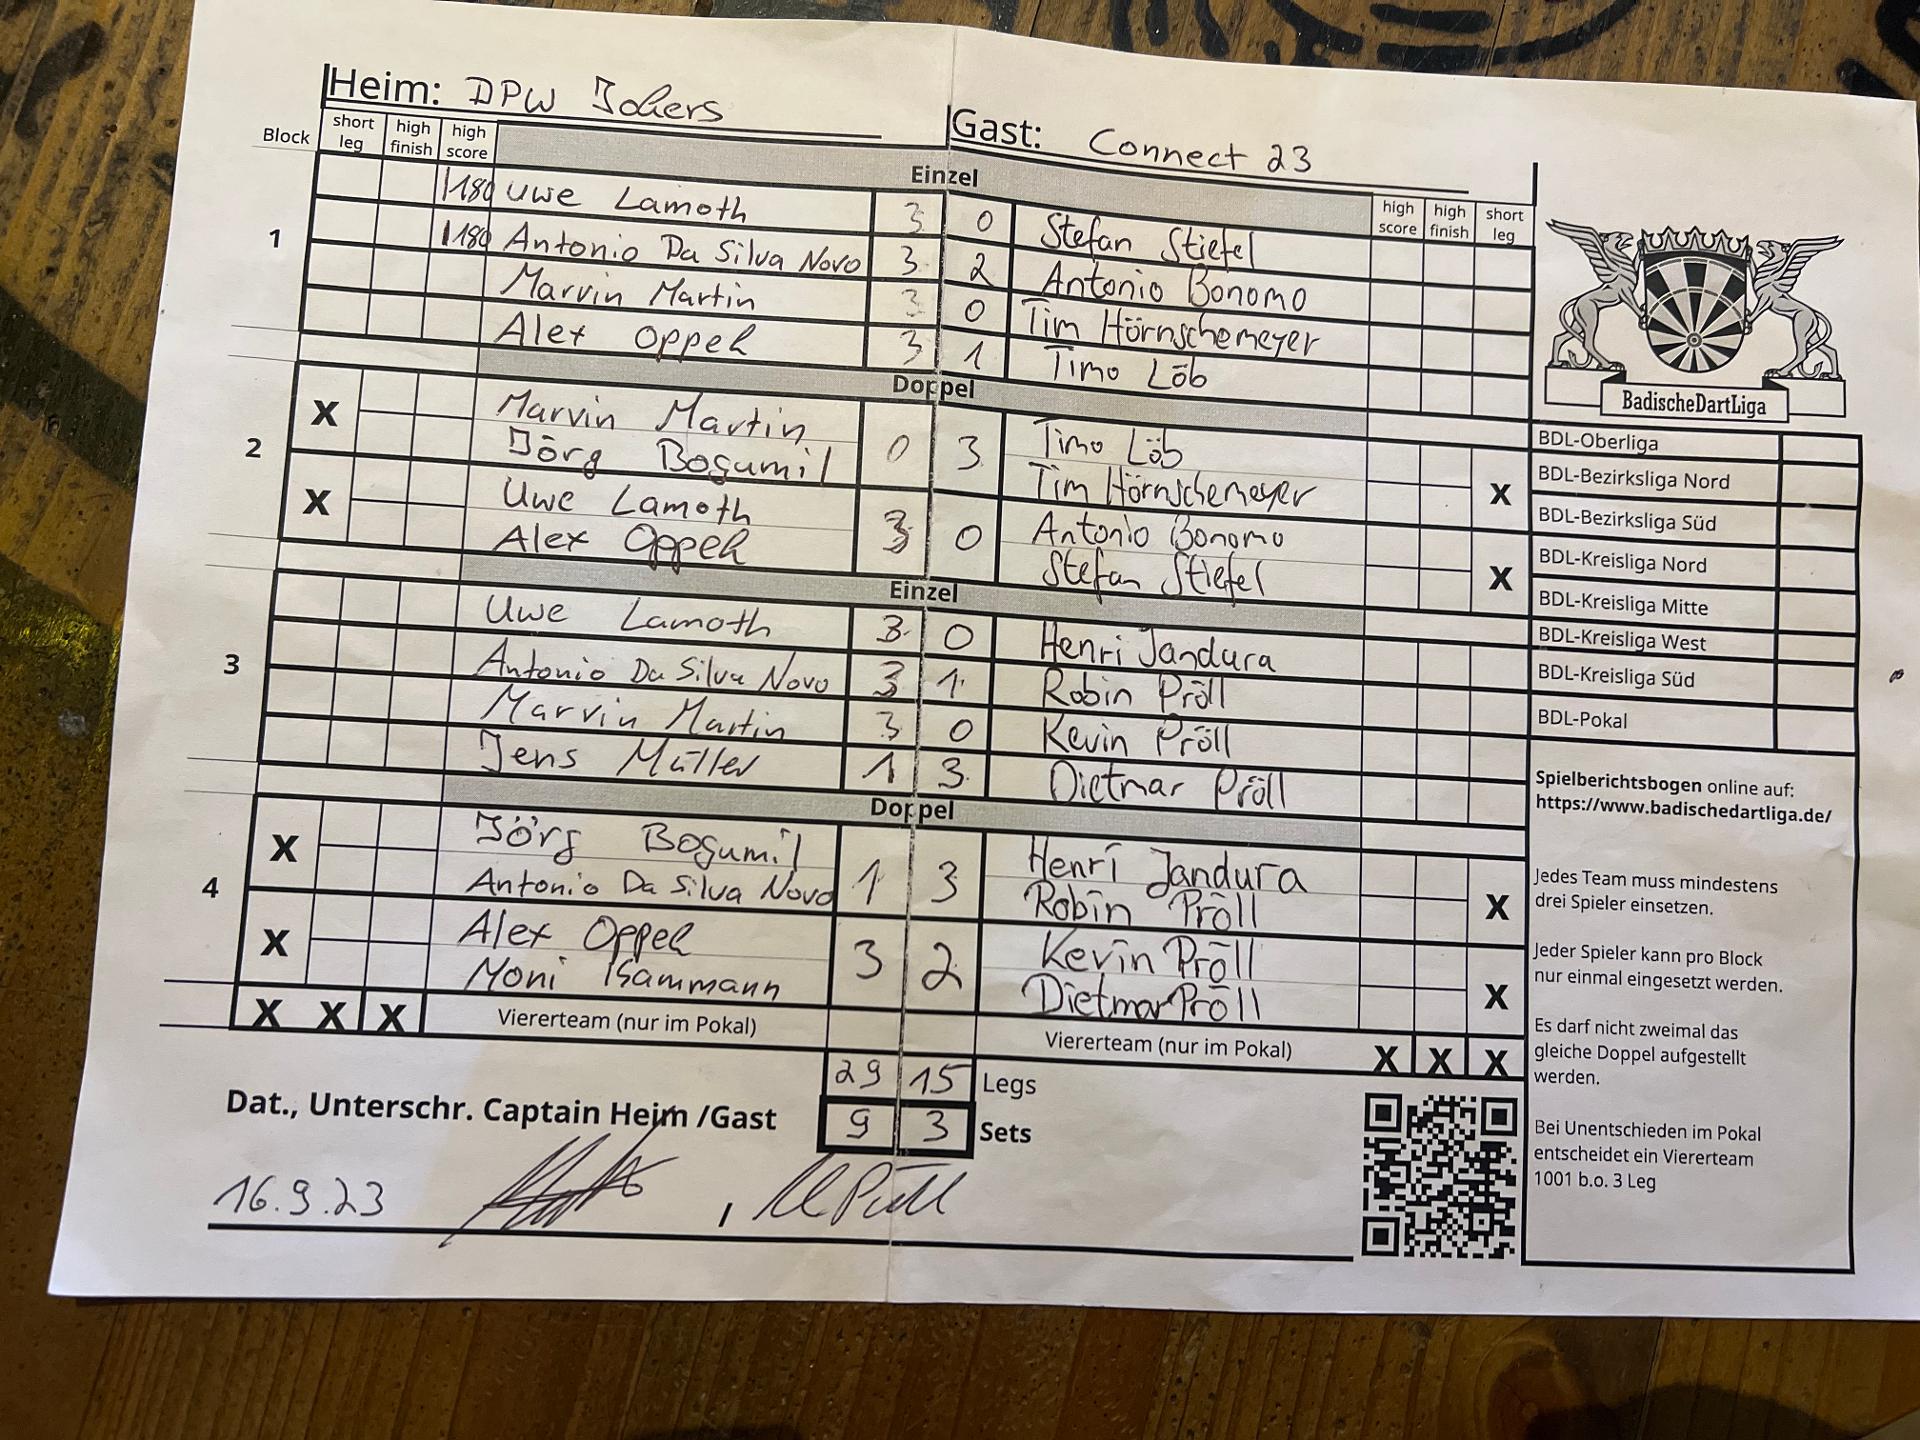 Heim: DPW Jokers
Gast: Connect 23
Block short leg high finish high score
Einzel
high score high finish short leg
1
180 Uwe Lamoth 3 0 Stefan Stiefel
180 Antonio Da Silva Novo 3 2 Antonio Bonomo
Marvin Martin 3 0 Tim Hörnschemeyer
Alex Oppel 3 1 Timo Löb
Doppel
2
X Marvin Martin 0 3 Timo Löb
Jörg Bogumil Tim Hörnschemeyer X
X Uwe Lamoth 3 0 Antonio Bonomo
Alex Oppel Stefan Stiefel X
Einzel
3
Uwe Lamoth 3 0 Henri Jandura
Antonio Da Silva Novo 3 1 Robin Pröll
Marvin Martin 3 0 Kevin Pröll
Jens Müller 1 3 Dietmar Pröll
Doppel
4
X Jörg Bogumil 1 3 Henri Jandura
Antonio Da Silva Novo Robin Pröll X
X Alex Oppel 3 2 Kevin Pröll
Moni Dietmar Pröll X
X X X Viererteam (nur im Pokal) Viererteam (nur im Pokal) X X X
29 15 Legs
9 3 Sets
Dat., Unterschr. Captain Heim /Gast
16.9.23 ,
BadischeDartLiga
BDL-Oberliga
BDL-Bezirksliga Nord
BDL-Bezirksliga Süd
BDL-Kreisliga Nord
BDL-Kreisliga Mitte
BDL-Kreisliga West
BDL-Kreisliga Süd
BDL-Pokal
Spielberichtsbogen online auf:
https://www.badischedartliga.de/
Jedes Team muss mindestens
drei Spieler einsetzen.
Jeder Spieler kann pro Block
nur einmal eingesetzt werden.
Es darf nicht zweimal das
gleiche Doppel aufgestellt
werden.
Bei Unentschieden im Pokal
entscheidet ein Viererteam
1001 b.o. 3 Leg